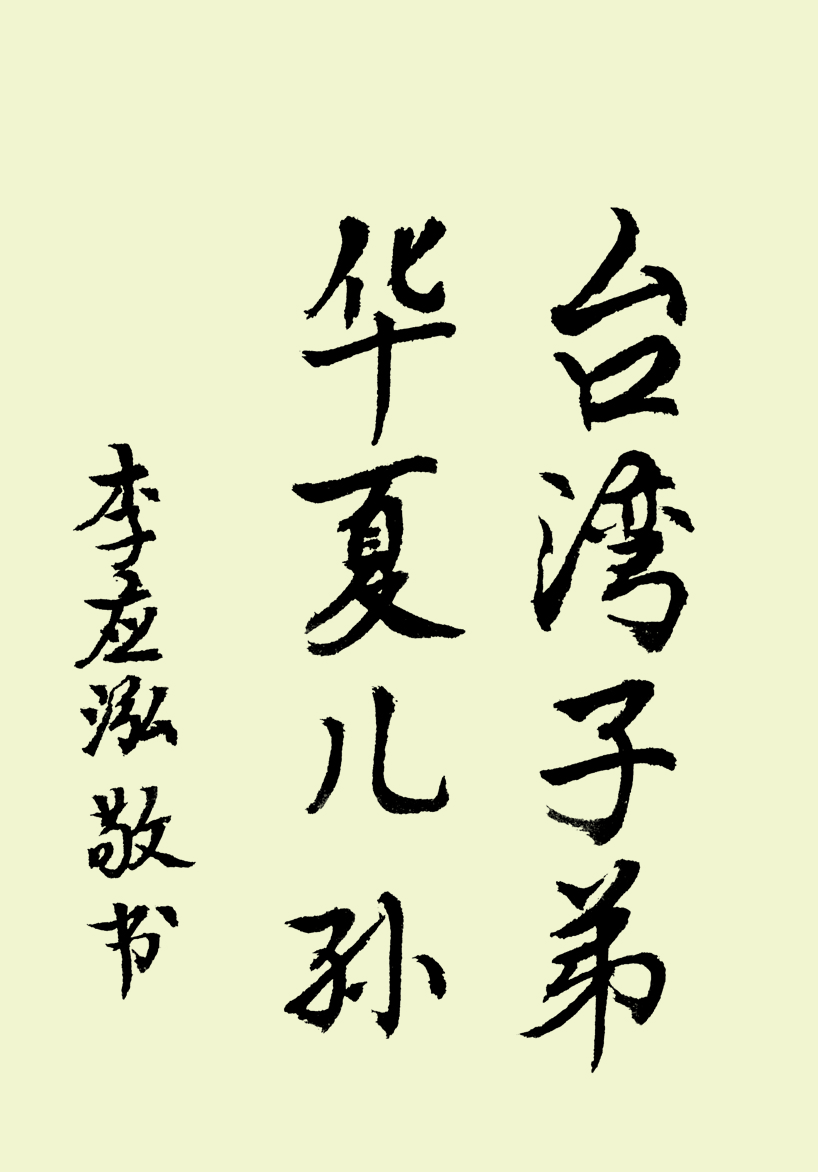 台湾子弟
华夏儿孙
李应泓敬书